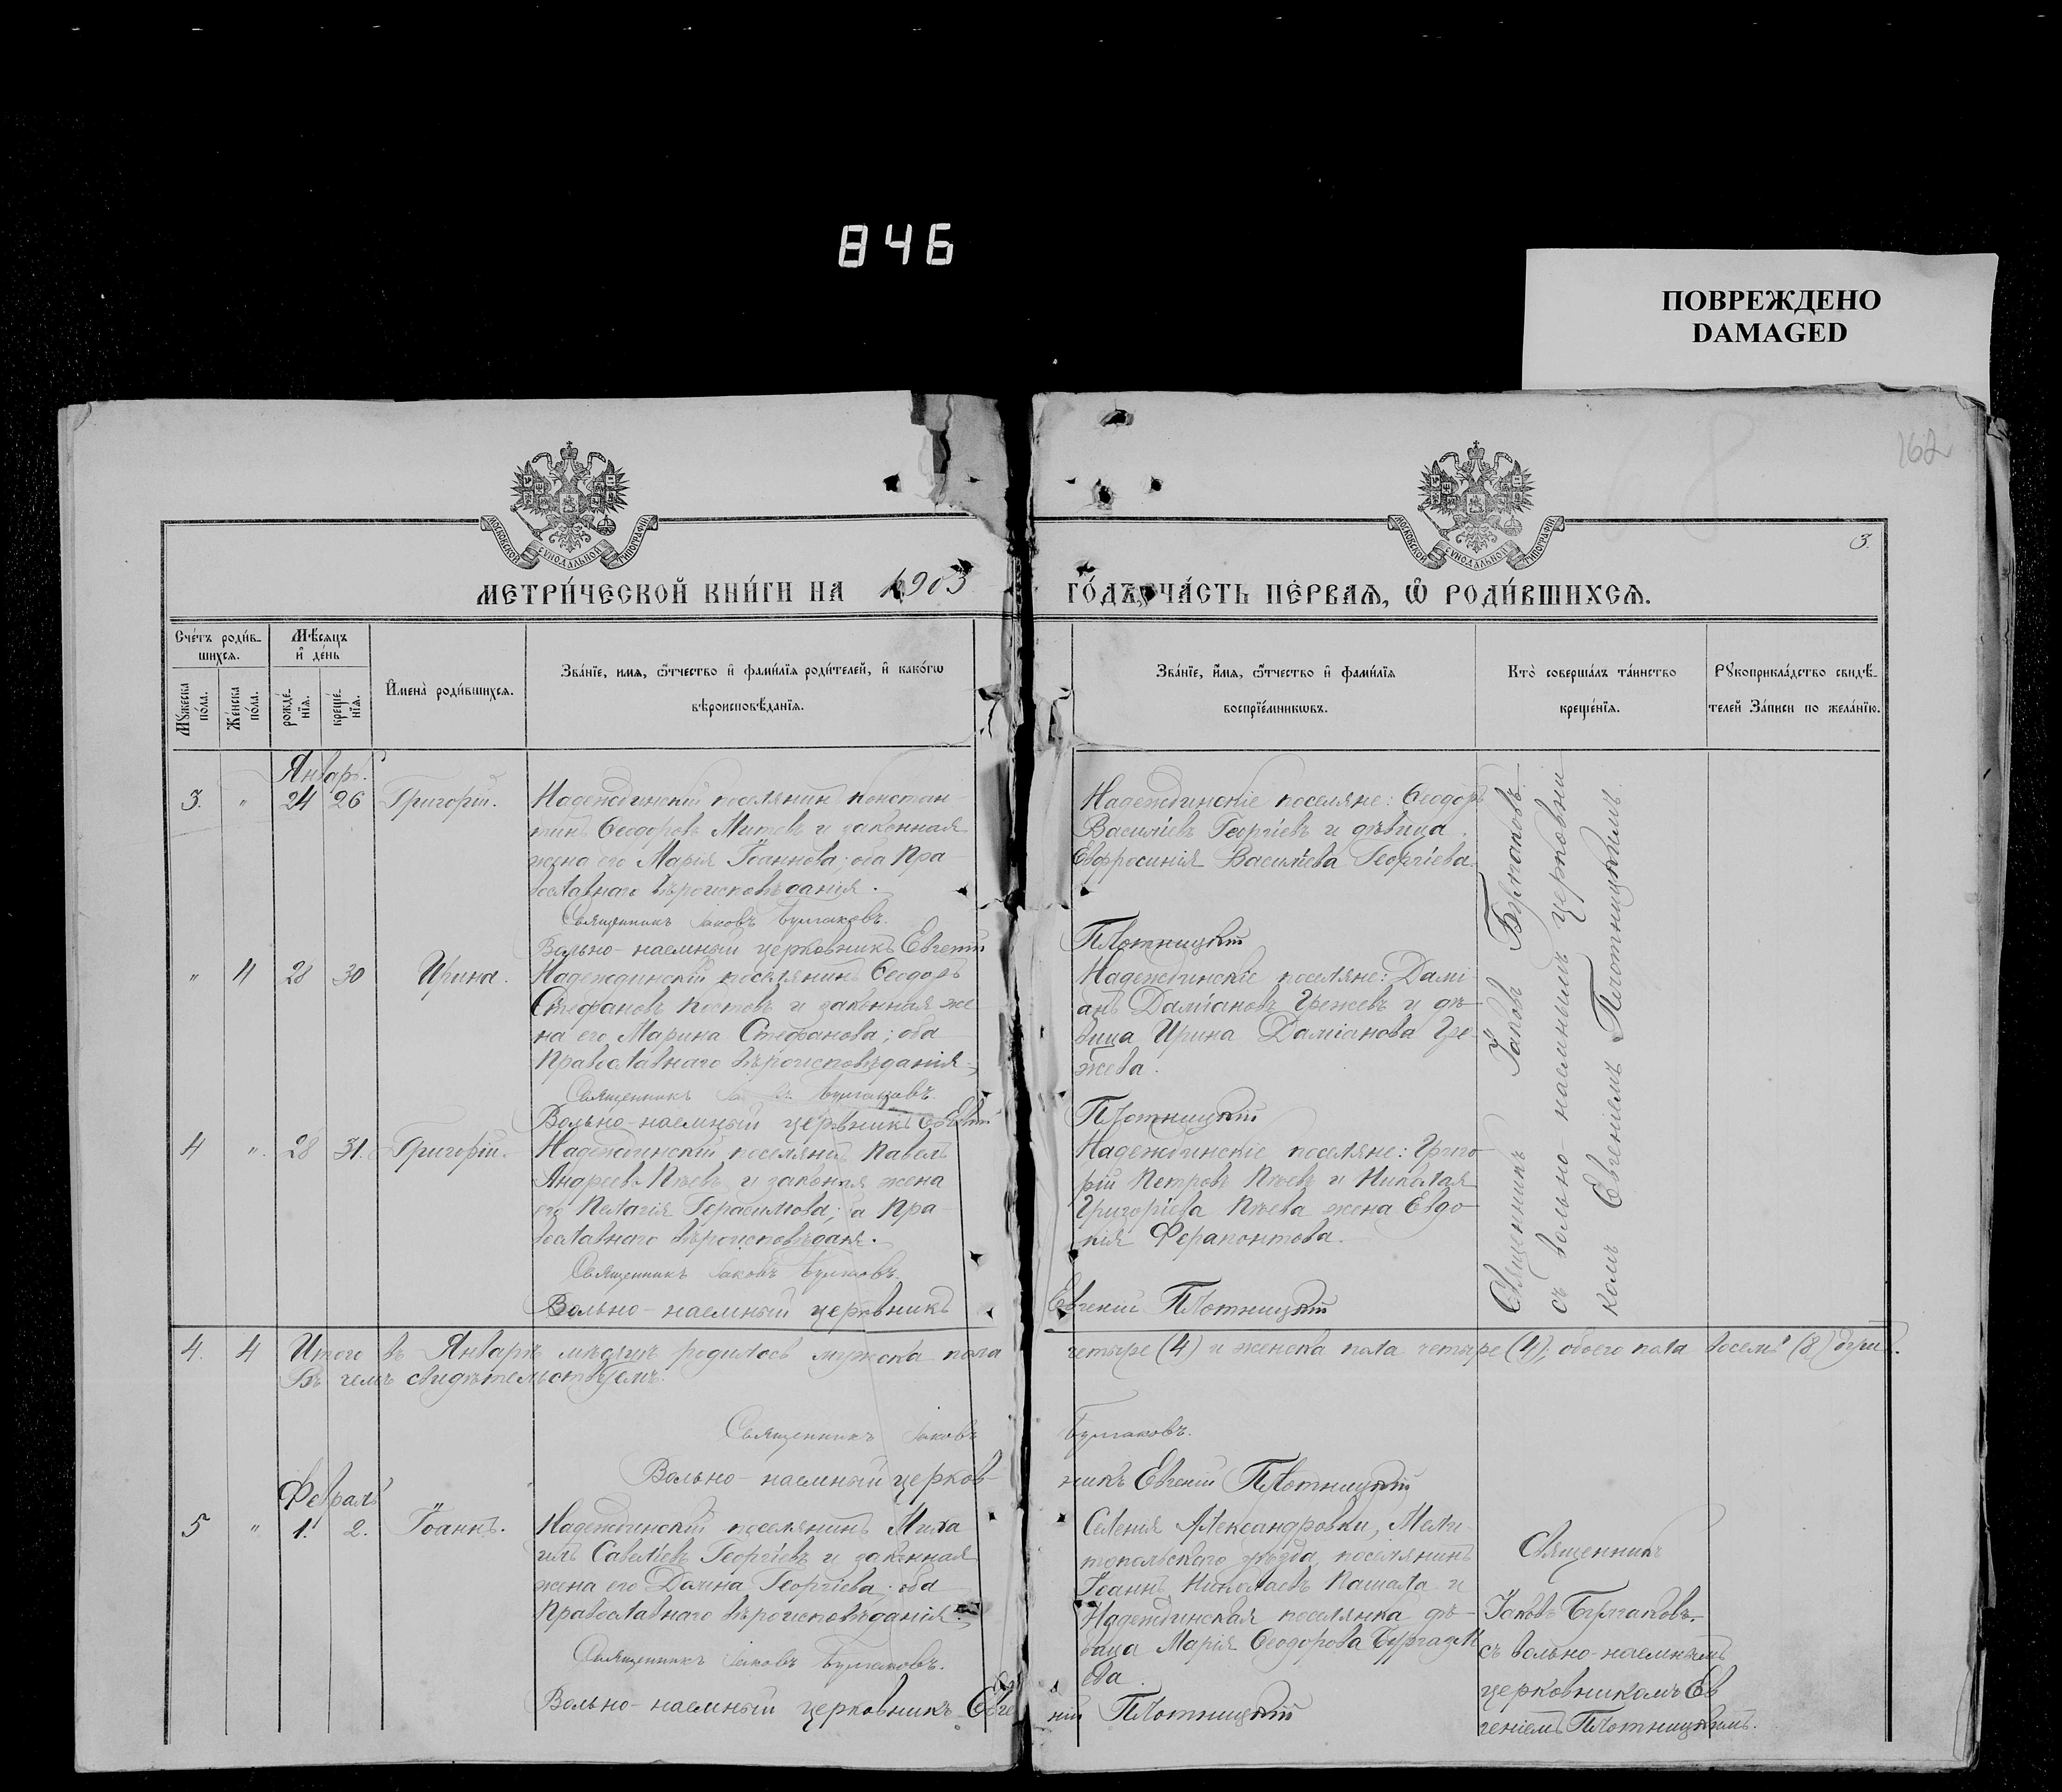 846
ПОВРЕЖДЕНО
DAMAGED
162
3.
МОСКОВСКОЙ СѴНОДАЛЬНОЙ ТИПОГРАФІИ
МОСКОВСКОЙ СѴНОДАЛЬНОЙ ТИПОГРАФІИ
МЕТРИ́ЧЕСКОЙ КНИ́ГИ НА 1903 ГО́ДЪ, ЧА́СТЬ ПЕ́РВАѦ, Ѡ҆ РОДИ́ВШИХСѦ.
Сче́тъ роди́в-
шихсѧ.
Мꙋ́жеска по́ла.
Же́нска по́ла.
Мѣ́сѧцъ
и҆ де́нь
рожде́-
нїѧ.
креще́-
нїѧ.
И҆мена̀ роди́вшихсѧ.
Зва́нїе, имѧ, ѻ҆́тчество и҆ фами́лїѧ роди́телей, и҆ како́гѡ
вѣроисповѣ́данїѧ.
Зва́нїе, и҆́мѧ, ѻ҆́тчество и҆ фами́лїѧ
воспрїе́мникѡвъ.
Кто̀ соверша́лъ та́инство
креще́нїѧ.
Рꙋкоприкла́дство свидѣ́-
телей за́писи по жела́нїю.
Январь.
3. " 24 26 Григорій.
Надеждинскій поселянинъ Констан-
тинъ Ѳеодоровъ Митевъ и законная
жена его Марія Іоаннова; оба Пра-
вославнаго вѣроисповѣданія.
Священникъ Іаковъ Булгаковъ.
Вольно-наемный церковникъ Евгеній
Надеждинскіе поселяне: Ѳеодоръ
Василіевъ Георгіевъ и дѣвица
Евфросинія Василіева Георгіева.
Плотницкій
" 4 28 30 Ирина.
Надеждинскій поселянинъ Ѳеодоръ
Стефановъ Костовъ и законная же-
на его Марина Стефанова; оба
Православнаго вѣроисповѣданія.
Священникъ Булгаковъ.
Вольно-наемный церковникъ
Надеждинскіе поселяне: Дамі-
анъ Даміановъ Грежевъ и дѣ-
вица Ирина Даміанова Гре-
жева.
Плотницкій
4 " 28 31. Григорій.
Надеждинскій поселянинъ Павелъ
Андреевъ Пѣевъ и законная жена
его Пелагія Герасимова; Пра-
вославнаго вѣроисповѣданія.
Священникъ Іаковъ Булгаковъ.
Вольно-наемный церковникъ
Надеждинскіе поселяне: Григо-
рій Петровъ Пѣевъ и Николая
Григоріева Пѣева жена Евдо-
кія Ферапонтова.
Евгеній Плотницкій
Священникъ Іаковъ Булгаковъ
съ вольно-наемнымъ церковни
комъ Евгеніемъ Плотницкимъ.
4. 4 Итого въ Январѣ мѣсяцѣ родилось мужска пола четыре (4) и женска пола четыре (4); обоего пола восемь (8) душъ.
Въ чемъ свидѣтельствуемъ:
Священникъ Іаковъ Булгаковъ.
Вольно-наемный церков-
никъ Евгеній Плотницкій
Февраль
5 " 1. 2. Іоаннъ.
Надеждинскій поселянинъ Миха-
илъ Савеліевъ Георгіевъ и законная
жена его Домна Георгіева; оба
Православнаго вѣроисповѣданія.
Священникъ Іаковъ Булгаковъ.
Вольно-наемный церковникъ Евге
ній Плотницкій
Селенія Александровки, Мели-
топольскаго уѣзда, поселянинъ
Іоаннъ Николаевъ Пашала и
Надеждинская поселянка дѣ-
вица Марія Ѳеодорова
Священникъ
Іаковъ Булгаковъ
съ вольно-наемнымъ
церковникомъ Ев
геніемъ Плотницкимъ.